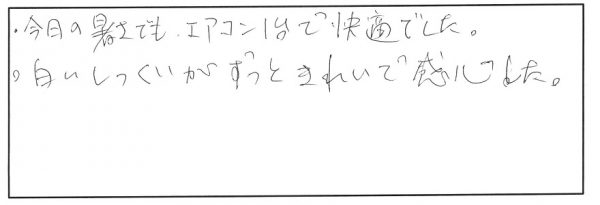 ・今日の暑さでも、エアコン1台で快適でした。
・白いしっくいがずっときれいで感心した。